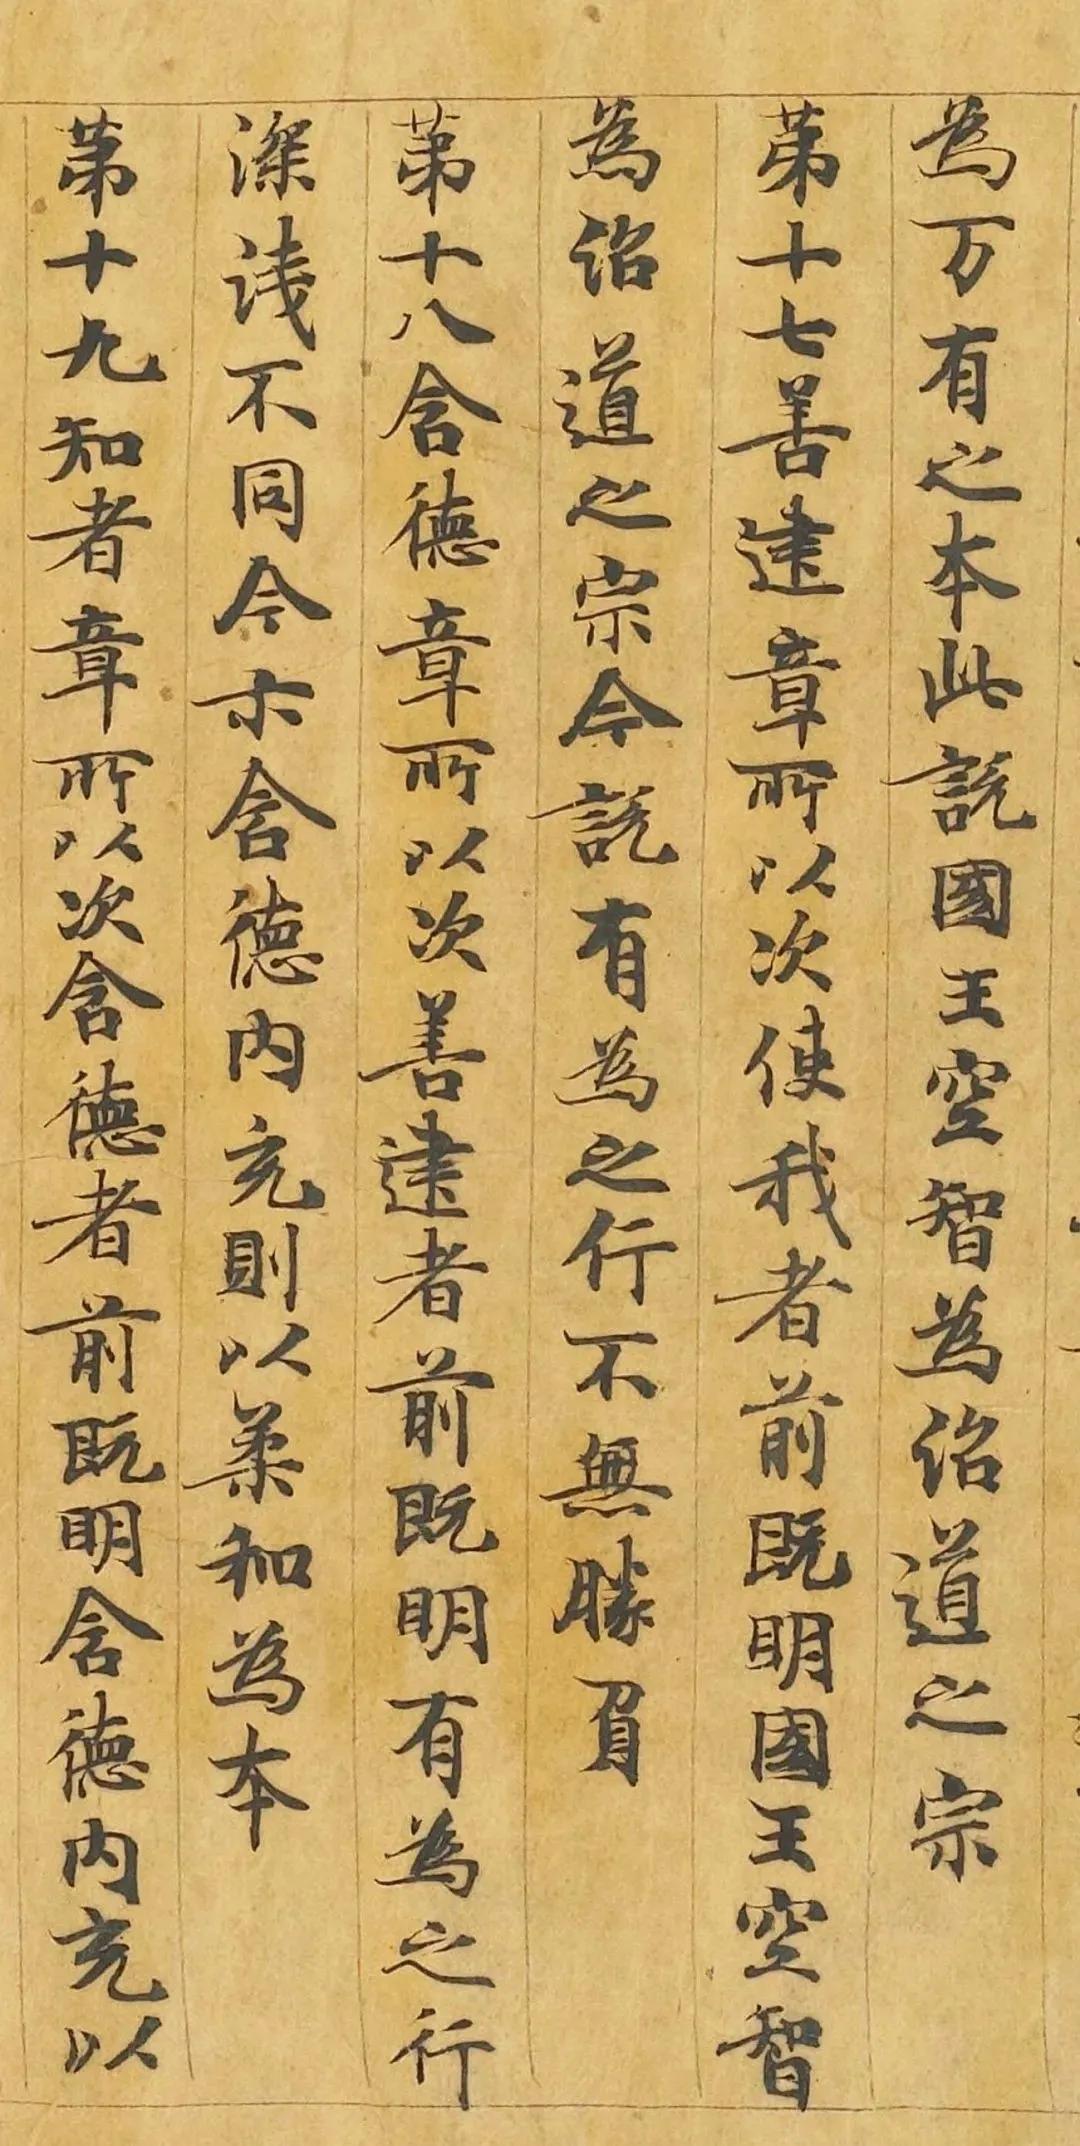 為万有之本此說國王空智為治道之宗
第十七善建章所以次使我者前既明國王空智
為治道之宗今說有為之行不無勝負
第十八含德章所以次善建者前既明有為之行
深淺不同今亦含德內充則以柔和為本
第十九知者章所以次含德者前既明含德內充以